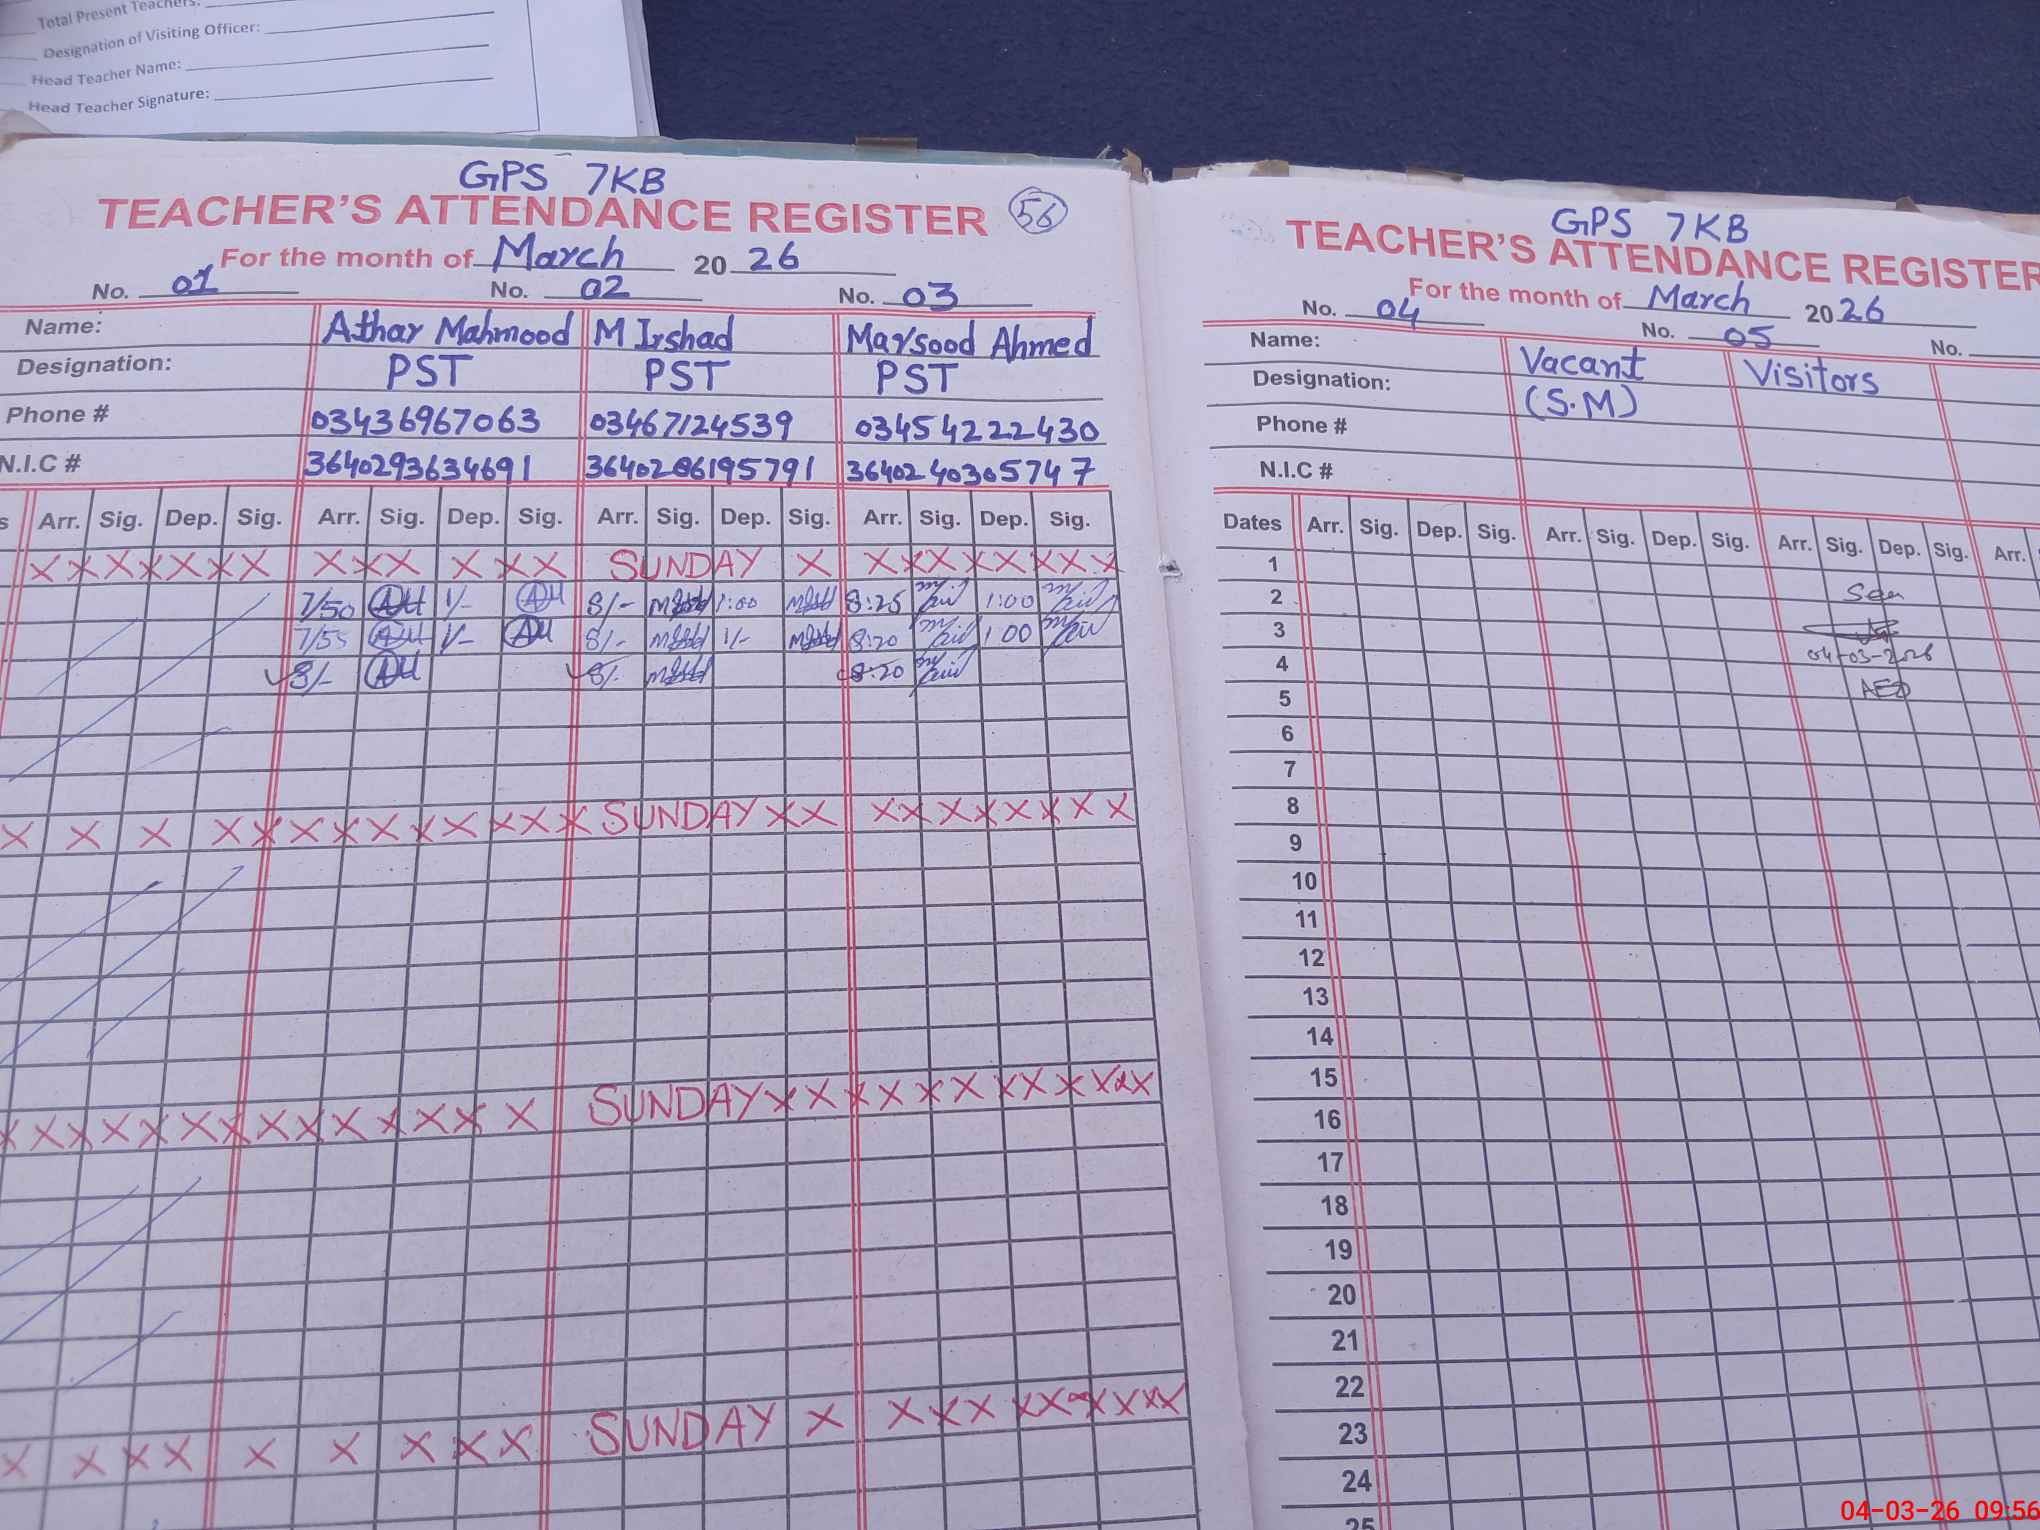 Total Present Teachers:
Designation of Visiting Officer:
Head Teacher Name:
Head Teacher Signature:
GPS 7KB
TEACHER'S ATTENDANCE REGISTER 56
For the month of March 2026
No. 01 No. 02 No. 03
Name: Athar Mahmood M Irshad Maqsood Ahmed
Designation: PST PST PST
Phone # 03436967063 03467124539 03454222430
N.I.C # 3640293634691 3640286195791 3640240305747
s Arr. Sig. Dep. Sig. Arr. Sig. Dep. Sig. Arr. Sig. Dep. Sig. Arr. Sig. Dep. Sig.
X X X X X X X X X X X X X X SUNDAY X X X X X X X X X
7/50 AM 1/- AM 8/- 1:00 8:25 1:00
7/55 AM 1/- AM 8/- 1/- 8:20 1 00
8/- AM 8/- 8:20
X X X X X X X X X X X X X X SUNDAY X X X X X X X X X X
X X X X X X X X X X X X X X SUNDAY X X X X X X X X X X X
X X X X X X X X X X SUNDAY X X X X X X X X X X
GPS 7KB
TEACHER'S ATTENDANCE REGISTER
For the month of March 2026
No. 04 No. 05 No.
Name: Vacant Visitors
Designation: (S.M)
Phone #
N.I.C #
Dates Arr. Sig. Dep. Sig. Arr. Sig. Dep. Sig. Arr. Sig. Dep. Sig. Arr.
1
2 Seen
3
4 04-03-2026
5 AEO
6
7
8
9
10
11
12
13
14
15
16
17
18
19
20
21
22
23
24
25
04-03-26 09:56